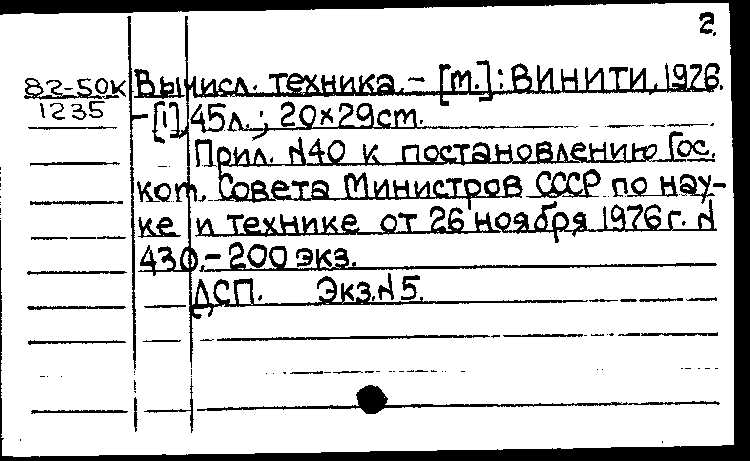 2.
82-50к Вычисл. техника. - [м.]: ВИНИТИ, 1976.
1235 - [1], 45л.; 20×29см.
Прил. №40 к постановлению Гос.
ком. Совета Министров СССР по нау-
ке и технике от 26 ноября 1976 г. №
430. - 200 экз.
ДСП. Экз. №5.